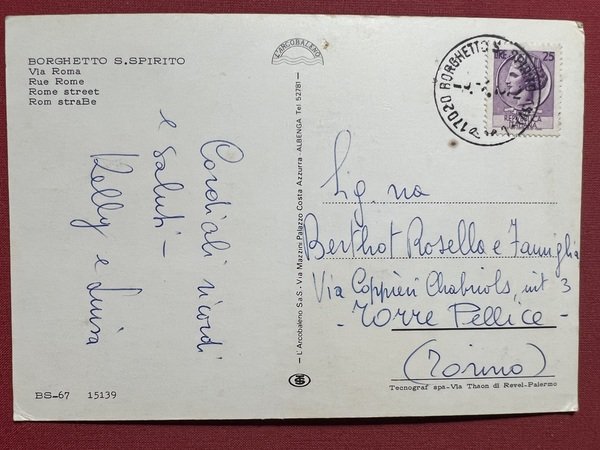 BORGHETTO S.SPIRITO
Via Roma
Rue Rome
Rome street
Rom straBe
L'ARCOBALENO
17020 BORGHETTO S. SPIRITO
25
LIRE
REPUBBLICA
ITALIANA
Cordiali ricordi
e saluti -
Kelly e Luisa
— L'Arcobaleno SaS - Via Mazzini Palazzo Costa Azzurra - ALBENGA Tel 52781 —
Sig.na
Berthot Rosella e Famiglia
Via Coppieri Chabriols, int 3
- TORRE PELLICE -
(Torino)
Tecnograf spa-Via Thaon di Revel-Palermo
BS-67 15139